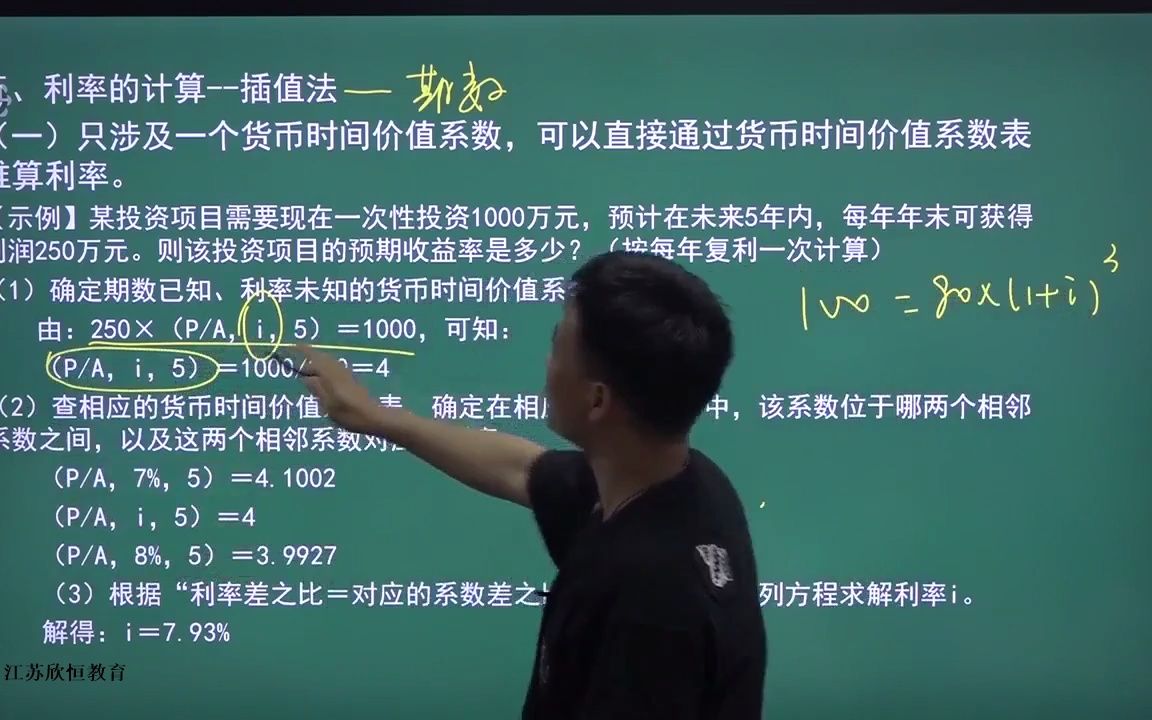 、利率的计算--插值法 — 期数
（一）只涉及一个货币时间价值系数，可以直接通过货币时间价值系数表
算利率。
示例】某投资项目需要现在一次性投资1000万元，预计在未来5年内，每年年末可获得
润250万元。则该投资项目的预期收益率是多少？（按每年复利一次计算）
（1）确定期数已知、利率未知的货币时间价值系
100 = 80×(1+i)³
由：250×（P/A，i，5）＝1000，可知：
（P/A，i，5）＝1000/ 0＝4
（2）查相应的货币时间价值 表，确定在相 中，该系数位于哪两个相邻
系数之间，以及这两个相邻系数对
（P/A，7%，5）＝4.1002
（P/A，i，5）＝4
（P/A，8%，5）＝3.9927
（3）根据“利率差之比＝对应的系数差之 列方程求解利率i。
解得：i＝7.93%
江苏欣恒教育